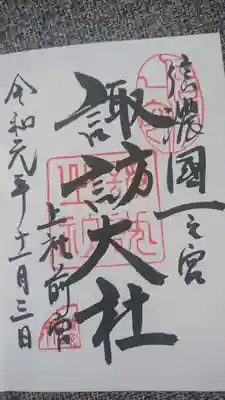 信濃國一之宮
諏訪大社
上社前宮
令和元年十一月三日